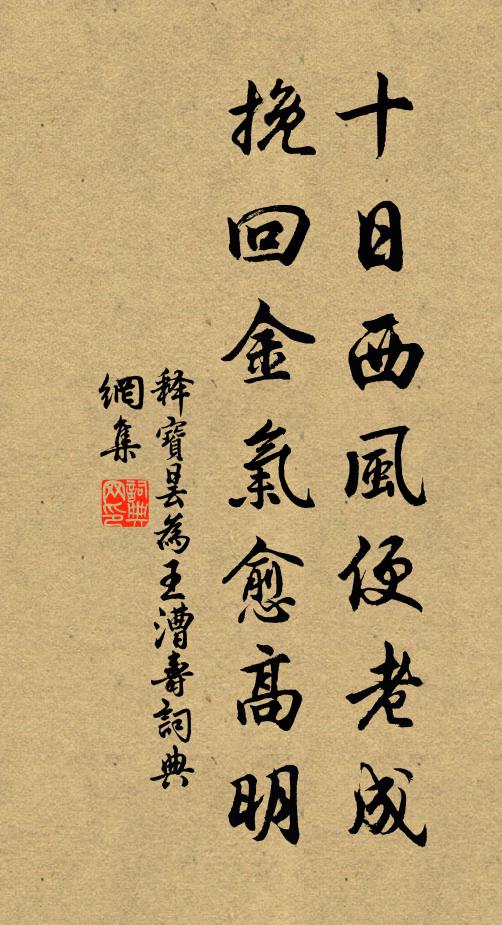 十日西風便老成
挽回金氣愈高明
釋寶曇為王漕壽詞典
網集
詞典
网印